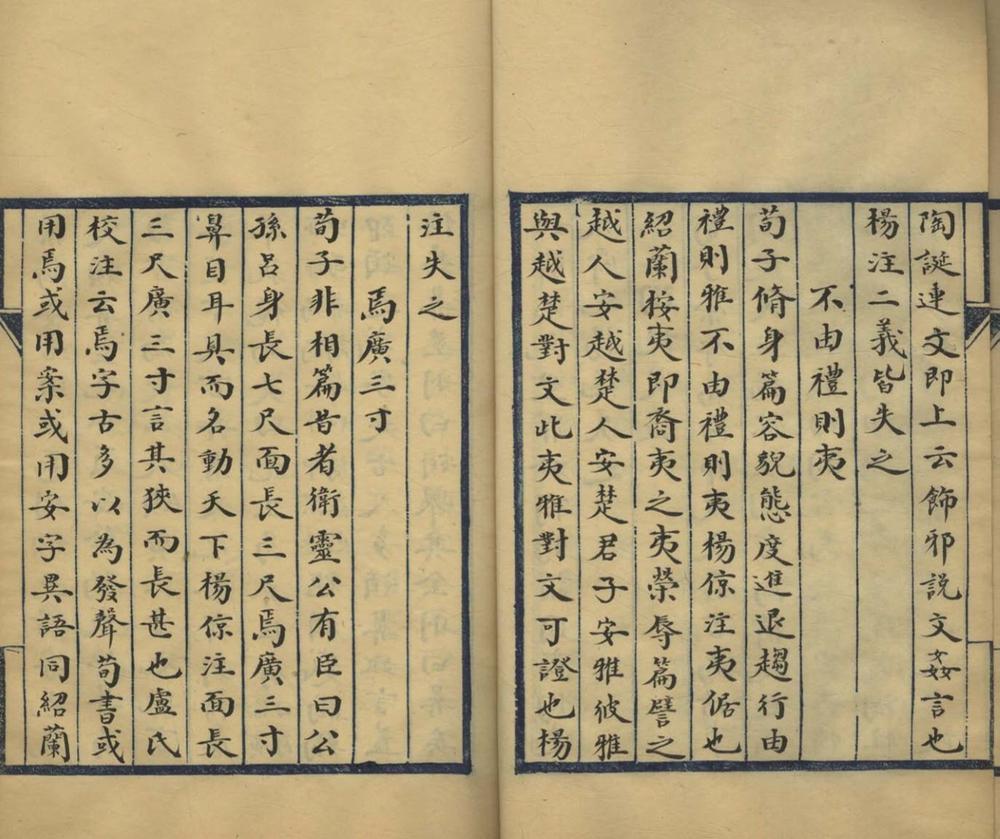 陶誕連文即上云飾邪説文姦言也
楊注二義皆失之
不由禮則夷
荀子脩身篇容貌態度進退趨行由
禮則雅不由禮則夷楊倞注夷倨也
紹蘭桉夷即裔夷之夷榮辱篇譬之
越人安越楚人安楚君子安雅彼雅
與越楚對文此夷雅對文可證也楊
注失之
焉廣三寸
荀子非相篇昔者衛靈公有臣曰公
孫呂身長七尺面長三尺焉廣三寸
鼻目耳具而名動天下楊倞注面長
三尺廣三寸言其狹而長甚也盧氏
校注云焉字古多以為發聲荀書或
用焉或用案或用安字異語同紹蘭